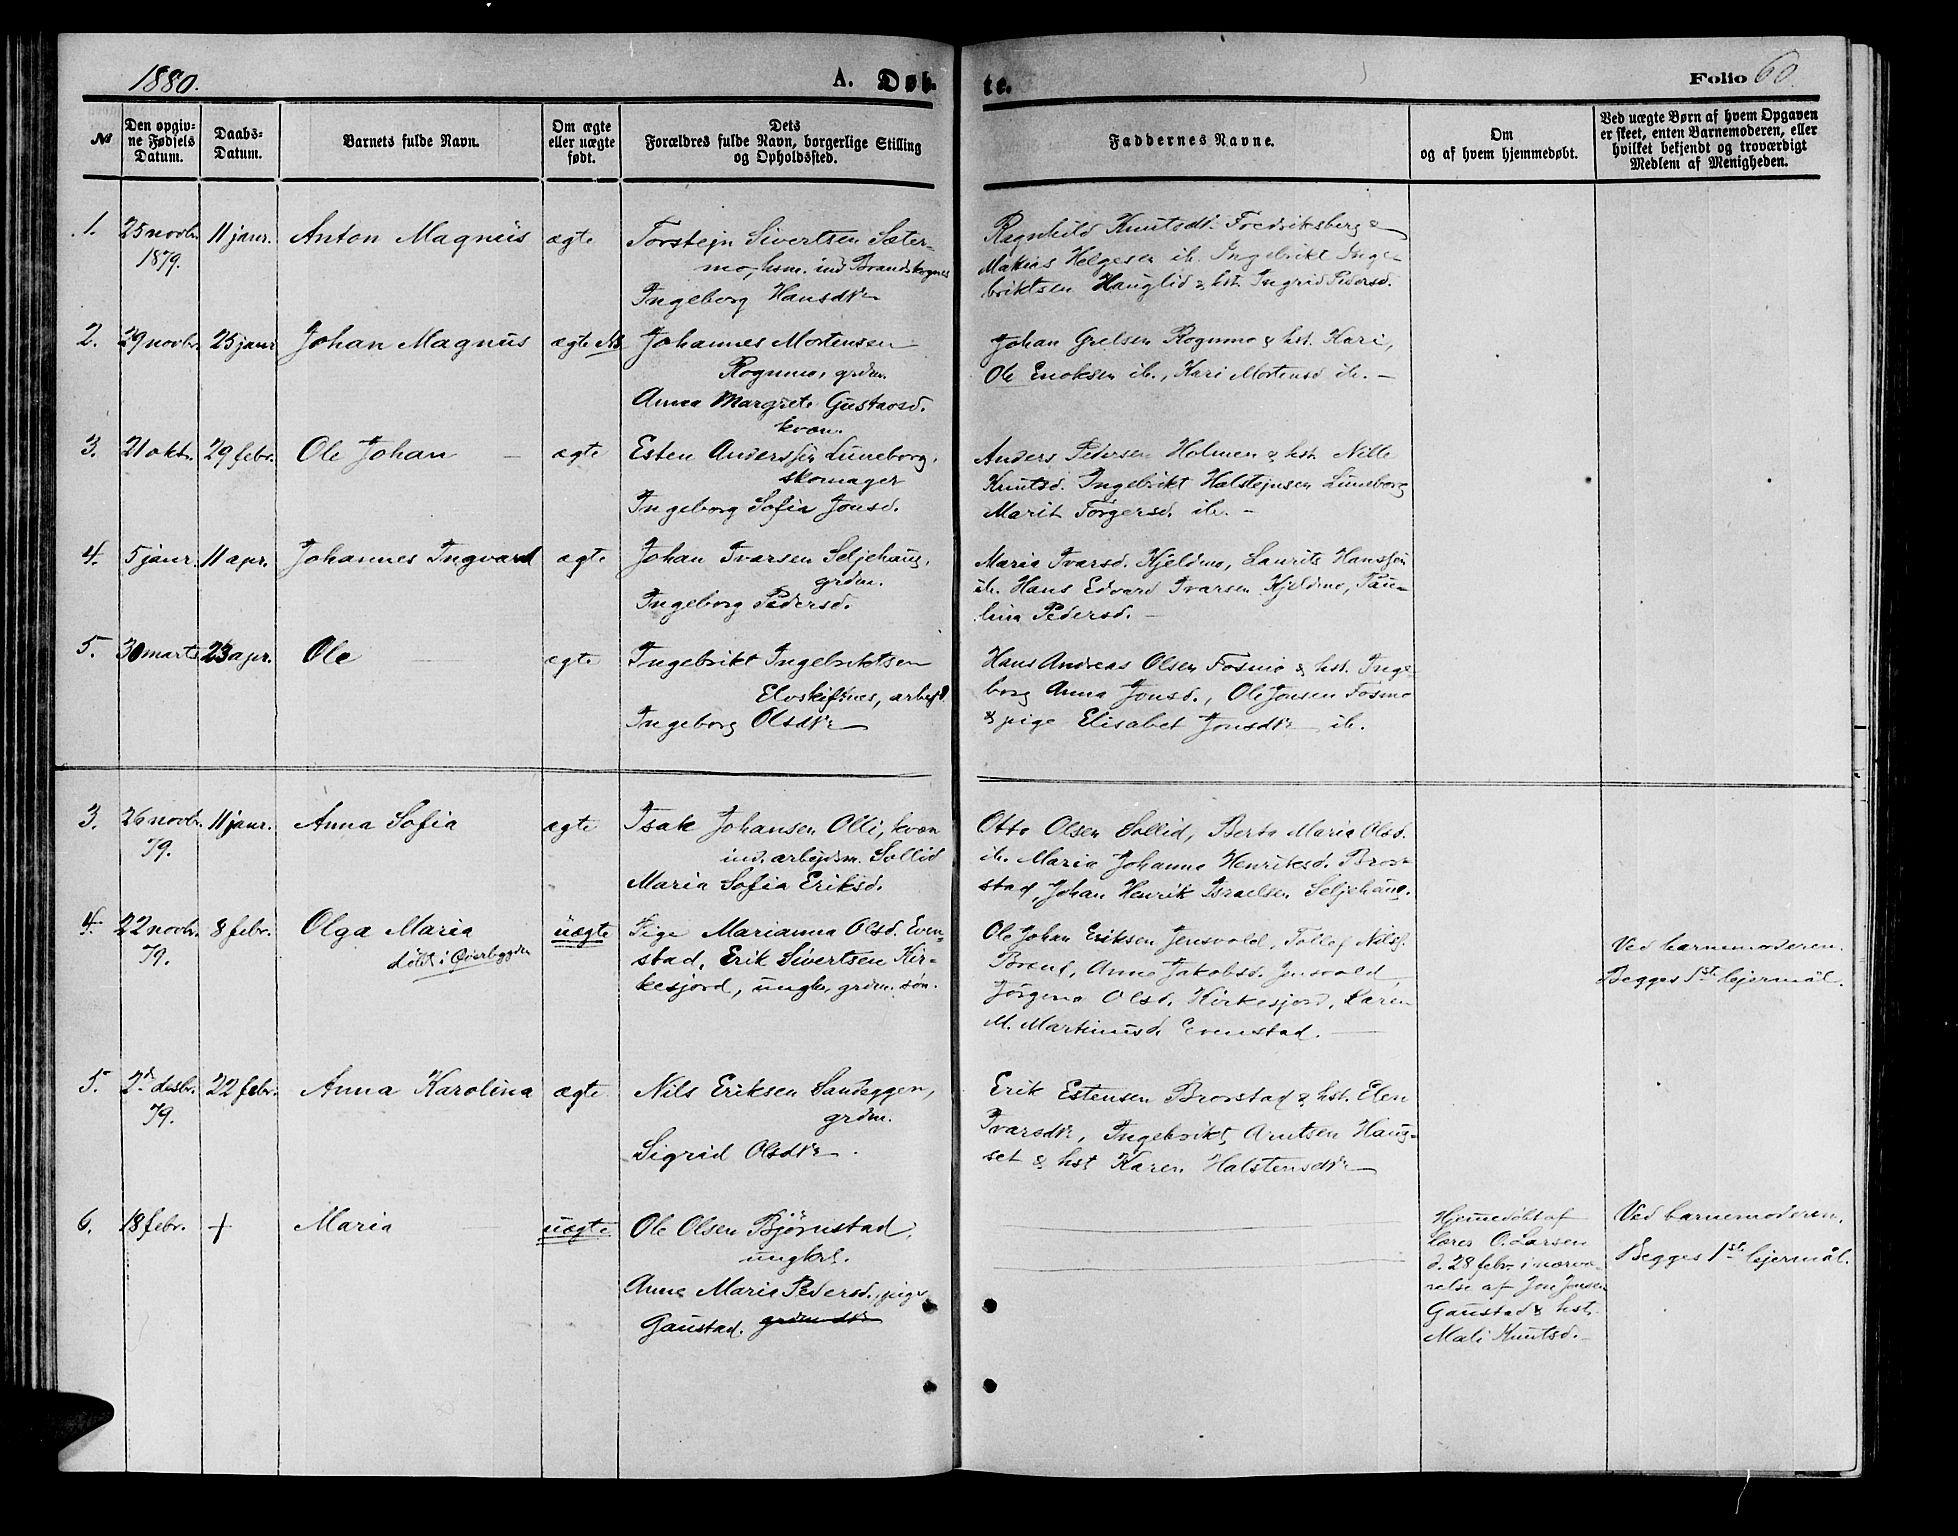 1880.
A. Døb-
te.
Folio 60.
No
Den opgiv-
ne Fødsels
Datum.
Daabs-
Datum.
Barnets fulde Navn.
Om ægte
eller uægte
født.
Dets
Forældres fulde Navn, borgerlige Stilling
og Opholdssted.
Faddernes Navne.
Om
og af hvem hjemmedøbt.
Ved uægte Børn af hvem Opgaven
er skeet, enten Barnemoderen, eller
hvilket bekjendt og troværdigt
Medlem af Menigheden.
1. 25 novbr. 11 janr. Anton Magnus ægte Torstejn Sivertsen Sæter-
1879.
mo, hsm. ind. Brandskognes
Ingeborg Hansdtr
Ragnhild Knutsdtr Fredriksberg &
Matias Helgesen ib. Ingebrikt Inge-
briktsen Hauglid & hst. Ingrid Pedersd.
2. 29 novbr. 25 janr Johan Magnus ægte NB. Johannes Mortensen
Rognmo, grdm.
Anna Margrete Gustavsd.
kvæn.
Johan Grelsen Rognmo & hst. Kari,
Ole Enoksen ib., Kari Mortensd ib. -
3. 21 okt. 29 febr. Ole Johan - ægte Esten Anderssen Lüneborg,
skomager
Ingeborg Sofia Jonsd.
Anders Pedersen Holmen & hst. Nille
Knutsd. Ingebrikt Halstejnsen Lüneborg
Marit Torgersd. ib. -
4. 5 janr. 11 apr. Johannes Ingvard ægte Johan Ivarsen Seljehaug,
grdm.
Ingeborg Pedersd.
Maria Ivarsd. Kjeldmo, Laurits Hanssen
ib. Hans Edvard Ivarsen Kjeldmo, Pau-
lina Pedersd. -
5. 30 marts 23 apr. Ole ægte Ingebrikt Ingebriktsen
Elvskifsnes, arbejd.
Ingeborg Olsdtr
Hans Andreas Olsen Fosmo & hst. Inge-
borg Anna Jonsd., Ole Jonsen Fosmo
& pige Elisabet Jonsdtr ib.
3. 26 novbr. 11 janr. Anna Sofia ægte Isak Johansen Olli, kvæn
79.
ind. arbejdsm. Sollid
Maria Sofia Eriksd.
Otto Olsen Sollid, Berta Maria Olsd.
ib. Maria Johanna Henriksd. Brov-
stad, Johan Henrik Israelsen Seljehaug.
4. 22 novbr. 8 febr. Olga Maria uægte Pige Marianna Olsd. Even-
79.
døbt i Øverbygden
stad, Erik Sivertsen Kir-
kesjord, ungkr, grdm. søn.
Ole Johan Eriksen Jensvold, Tollef Nilss.
Brend, Anne Jakobsd. Jensvold
Jørgena Olsd. Kirkesjord, Karen
M. Martinusd. Evenstad. -
Ved barnemoderen.
Begges 1st lejermål.
5. 2d desbr. 22 febr. Anna Karolina ægte Nils Eriksen Sandeggen,
79.
grdm.
Sigrid Olsdtr.
Erik Estensen Brovstad & hst. Elen
Ivarsdtr, Ingebrikt Arntsen Haug-
set & hst Karen Halstensdtr
6. 18 febr. + Maria uægte Ole Olsen Bjørnstad,
ungkrl.
Anna Maria Pedersd., pige
Gaustad. grdm dtr
Hjemmedøbt af
lærer O. Larsen
d. 28 febr. i nærvæ-
relse af Jon Jonsen
Gaustad & hst.
Mali Knutsd. -
Ved barnemoderen.
Begges 1st lejermål.